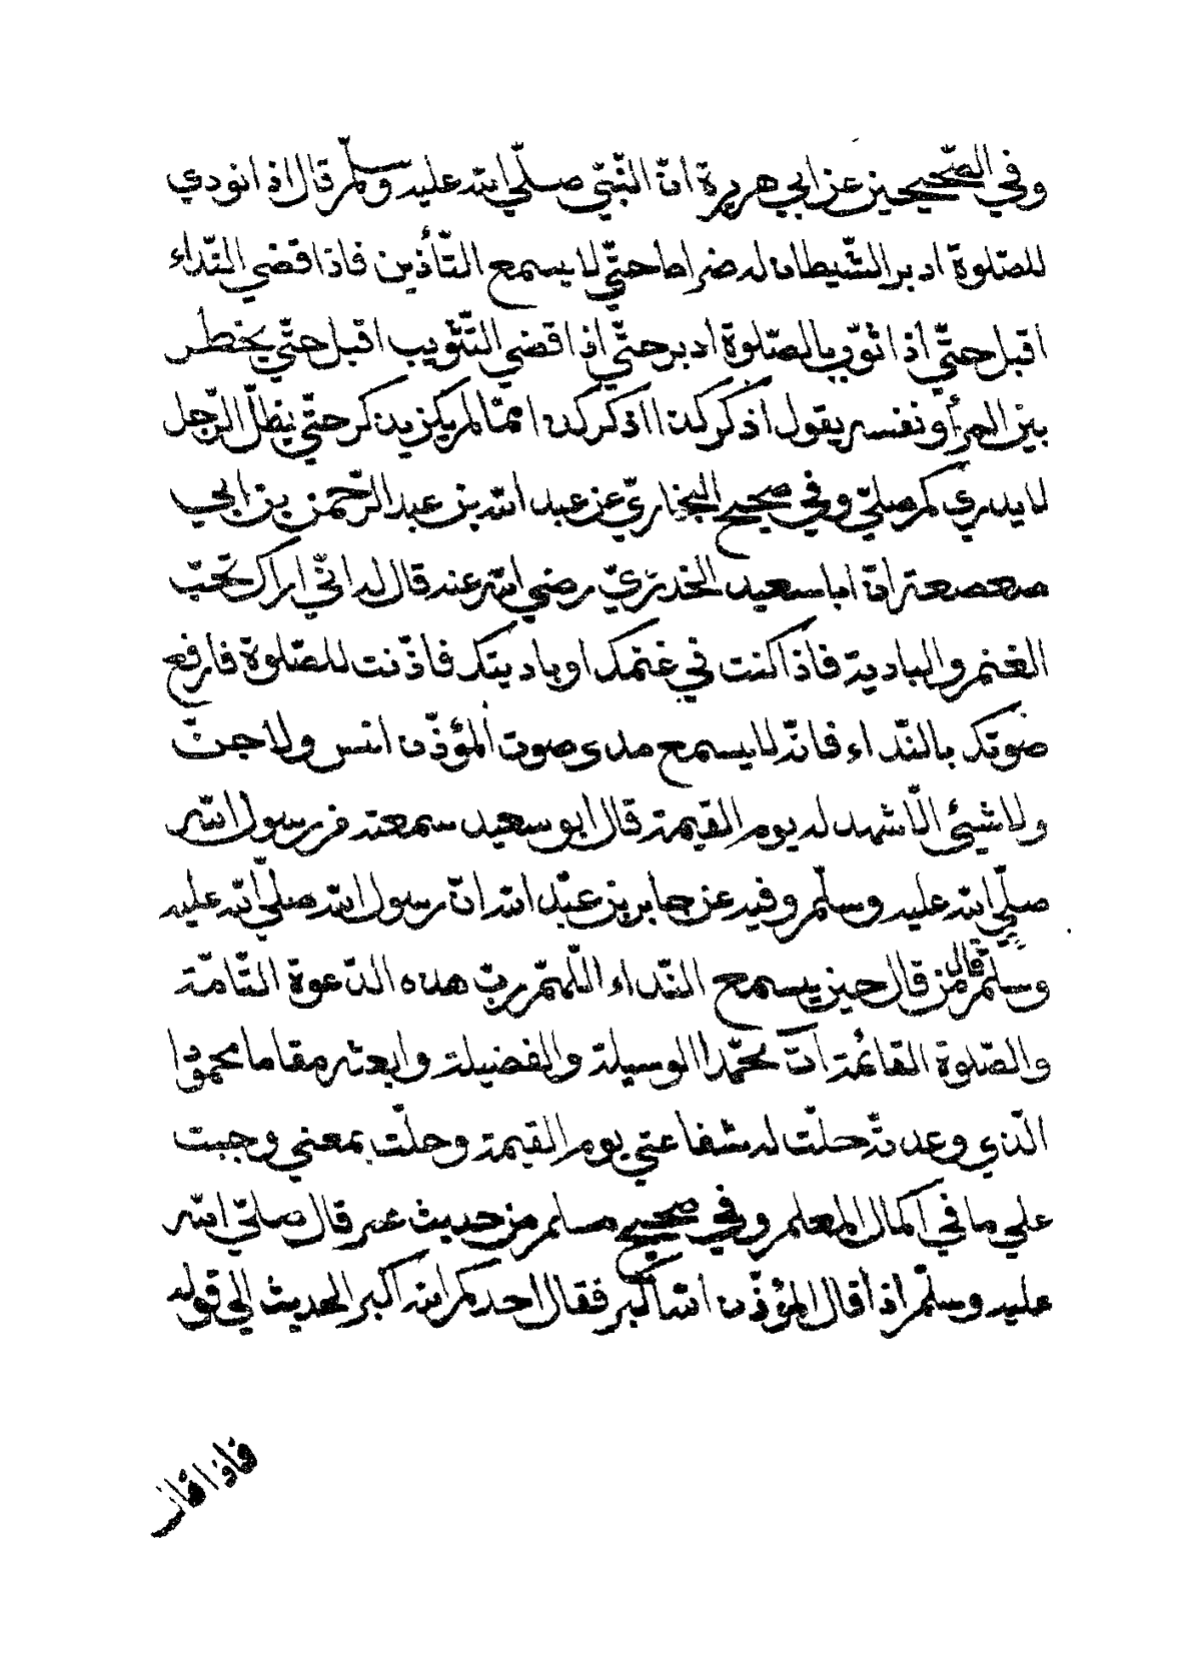 وفي الصّحيحين عن ابي هريرة انّ النّبيّ صلّي الله عليه وسلّم قال اذا نودي
للصّلوة ادبر الشّيطان له ضراط حتّي لا يسمع التّأذين فاذا قضي النّداء
اقبل حتّي اذا ثوّب بالصّلوة ادبر حتّي اذا قضي التّثويب اقبل حتّي يخطر
بين المرأ ونفسه يقول اذكر كذا اذكر كذا لما لم يكن يذكر حتّي يظلّ الرّجل
لا يدري كم صلّي وفي صحيح البخاريّ عن عبد الله بن عبد الرّحمن بن ابي
صعصعة انّ ابا سعيد الخدريّ رضي الله عنه قال له انّي اراك تحبّ
الغنم والبادية فاذا كنت في غنمك او باديتك فاذّنت للصّلوة فارفع
صوتك بالنّداء فانّه لا يسمع مدى صوت المؤذّن انس ولا جنّ
ولا شيئ الّا شهد له يوم القيمة قال ابو سعيد سمعته من رسول الله
صلّي الله عليه وسلّم وفيه عن جابر بن عبد الله انّ رسول الله صلّي الله عليه
وسلّم قال من قال حين يسمع النّداء اللّهمّ ربّ هذه الدّعوة التّامّة
والصّلوة القائمة آت محمّدا الوسيلة والفضيلة وابعثه مقاما محمودا
الّذي وعدته حلّت له شفاعتي يوم القيمة وحلّت بمعني وجبت
علي ما في اكمال المعلم وفي صحيح مسلم من حديث عمر قال صلّي الله
عليه وسلّم اذا قال المؤذّن الله اكبر فقال احدكم الله اكبر الحديث الي قوله